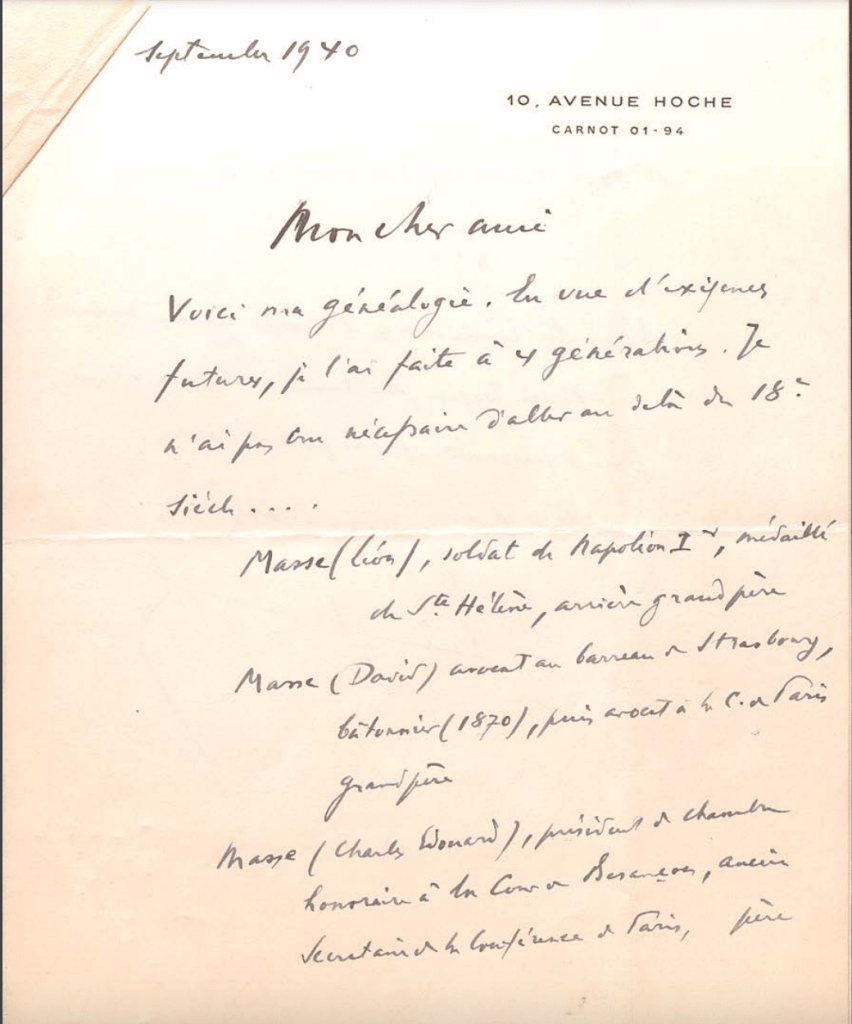 September 1940
10, AVENUE HOCHE
CARNOT 01-94
Mon cher ami
Voici ma généalogie. En vue d'exigences
futures, je l'ai faite à 4 générations. Je
n'ai pas cru nécessaire d'aller au delà du 18e
siècle ....
Masse (Léon), soldat de Napoléon Ier, médaillé
de Ste Hélène, arrière grand père
Masse (David) avocat au barreau de Strasbourg,
bâtonnier (1870), puis avocat à la C. de Paris
grand père
Masse (Charles Edouard), président de chambre
honoraire à la Cour de Besançon, ancien
Secrétaire de la Conférence de Paris, père